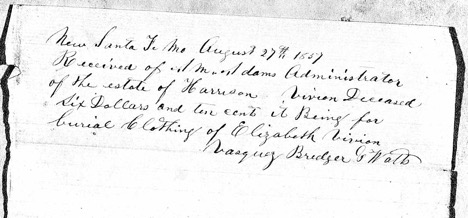 New Santa Fe Mo August 27th 1857
Received of A M Adams Administrator
of the estate of Harrison Vivion Deceased
Six Dollars and ten cents it Being for
burial Clothing of Elizabeth Vivion
Vasquez Bredger &